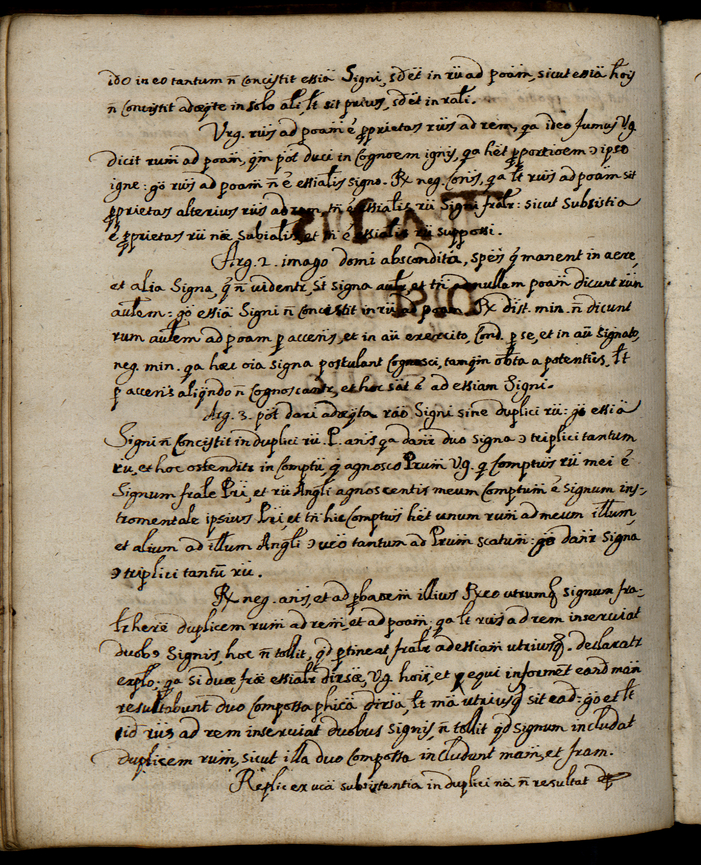 ido in eo tantum ñ Concistit essiâ Signi, sd et in rũ ad poam, sicut essiâ hois
ñ Concistit adeqte in solo ali, lt sit prius, sd et in rali.
Vrg. rus ad poam ẽ pprietas rus ad rem, qa ideo fumus Vg.
dicit rum ad poam, qm pot duci in Cognoem ignis, qa het pportioem ɔ ipso
igne: go rus ad poam ñ ẽ essialis signo. Rx neg. Conis, qa lt rus ad poam sit
pprietas alterius rus ad rem, tñ ẽ essialis rũ Signi fralr: sicut Subsistia
ẽ pprietas rũ nae Subialis, et tñ ẽ essialis rũ suppossi.
Arg. 2. imago domi abscondita, speis q manent in aere,
et alia Signa, q ñ uidentr, st signa aulr, et tñ ad nullam poam dicunt rum
aulem: go essiâ Signi ñ Concistit in rũ ad poam. Rx dist. min. ñ dicunt
rum aulem ad poam p accens, et in aũ exercito, Cond. p se, et in aũ signato,
neg. min. qa haec oia signa postulant Cognosci, tamqm obta a potentiis, lt
p accens aliqndo ñ Cognoscantr, et hoc sat ẽ ad essiam Signi.
Arg. 3. pot dari adeqta rao Signi sine duplici rũ: go essiâ
Signi ñ Concistit in duplici rũ. P. ans qa danr duo signa ɔ triplici tantum
rũ, et hoc ostenditr in Comptũ, q agnosco Prum Vg. q Comptus rũ mei ẽ
Signum frale Pri, et rũ Angli agnoscentis meum Comptum ẽ signum ins-
tromentale ipsius Pri, et tñ hic Comptus het unum rum ad meum illum,
et alium ad illum Angli ɔ uero tantum ad Prum scatum: go danr signa
ɔ triplici tantũ rũ.
Rx neg. ans, et ad pbaoem illius Rxeo utrumq signum fra-
lr here duplicem rum ad rem, et ad poam: qa lt rus ad rem inseruiat
duobs Signis, hoc ñ tollit, qd ptineat fralr ad essiam utriusq. declaratr
explo: qa si duae frae essialr dirsae, Vg. hois, et equi informẽt eand mam
resultabunt duo Compossa phica dirsa, lt mâ utriusq sit ead: go et lt
id rus ad rem inseruiat duobus signis, ñ tollit qd signum includat
duplicem rum, sicut illa duo Compossa includunt mam, et fram.
Replic. ex ucâ subsistentia in duplici nâ ñ resultat